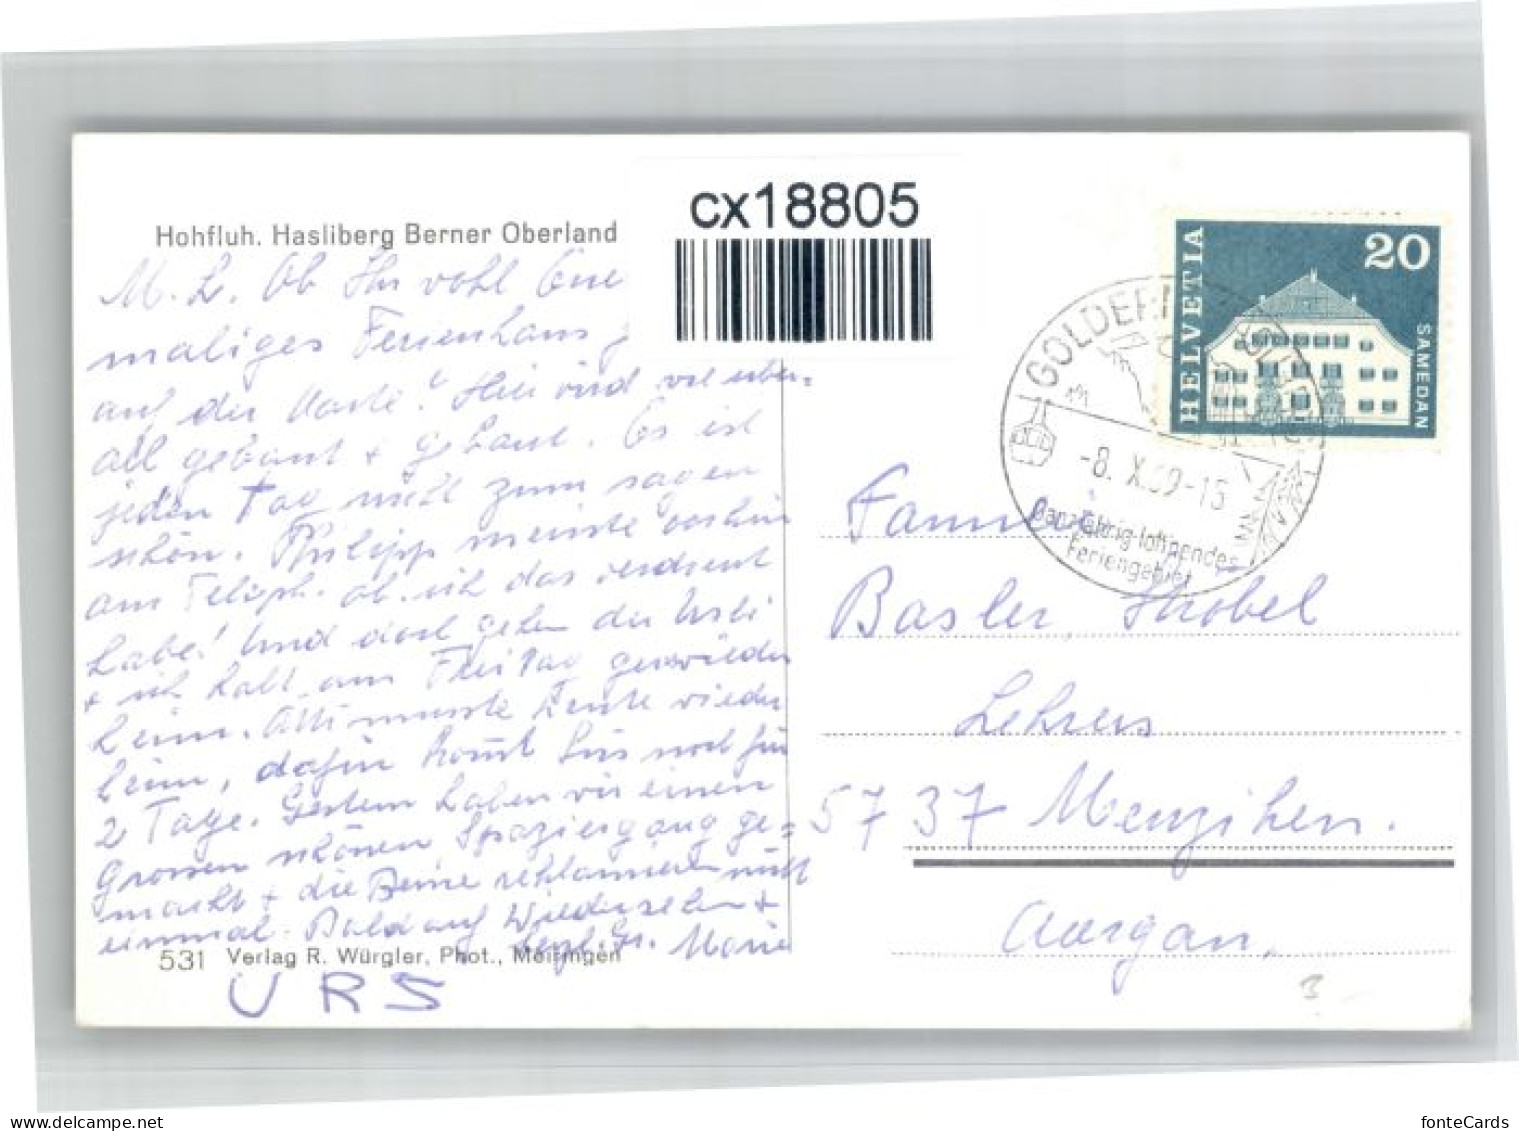 cx18805
Hohfluh. Hasliberg Berner Oberland
M. L. Ob Ihr wohl Eue
maliges Ferienhaus
auf der Karte? Hier wird viel über-
all gebaut + gebaut. Es ist
jeden Tag nicht zum sagen
schön. Philipp meinte vorhin
am Teleph. ob ich das verdient
habe! Und doch gehen der Ueli
+ ich halt am Freitag gerne wieder
heim. Otti musste heute wieder
heim, dafür kommt Urs noch für
2 Tage. Gestern haben wir einen
Grossen schönen Spaziergang ge=
macht + die Beine reklamierten nicht
einmal. Bald auf Wiedersehen +
herzl. Gr. Marie
531 Verlag R. Würgler, Phot., Meiringen
URS
HELVETIA
20
SAMEDAN
GOLDERN
-8. X. 69-15
Ganzjährig lohnendes
Feriengebiet
Familie
Basler Strobel
Lehrers
5737 Menziken.
Aargau,
3
fonteCards